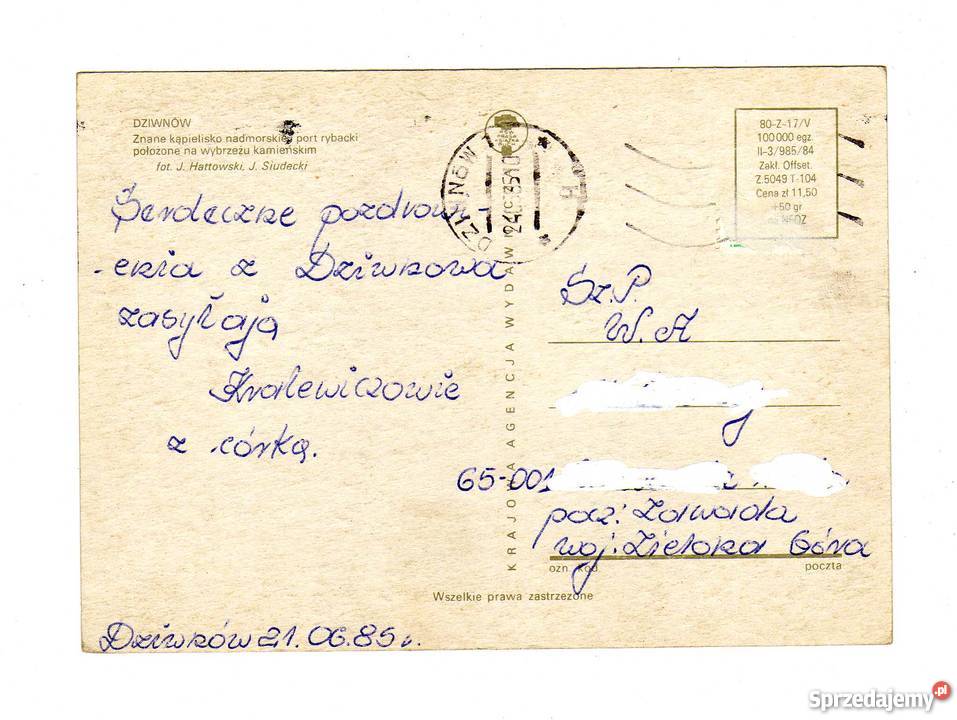 DZIWNÓW
Znane kąpielisko nadmorskie i port rybacki
położone na wybrzeżu kamieńskim
fot. J. Hattowski, J. Siudecki
Serdeczne pozdrow-
enia z Dziwnowa
zasyłają
Kralewiczowie
z córką.
Dziwnów 21.06.85 r.
KRAJOWA AGENCJA WYDAWNICZA
DZIWNÓW 1
80-Z-17/V
100 000 egz.
II-3/985/84
Zakł. Offset.
Z.5049 T-104
Cena zł 11,50
+50 gr
na NFOZ
Sz.P.
W. A
65-001
pocz: Zawada
woj: Zielona Góra
ozn. kod. poczta
Wszelkie prawa zastrzeżone
Sprzedajemy.pl